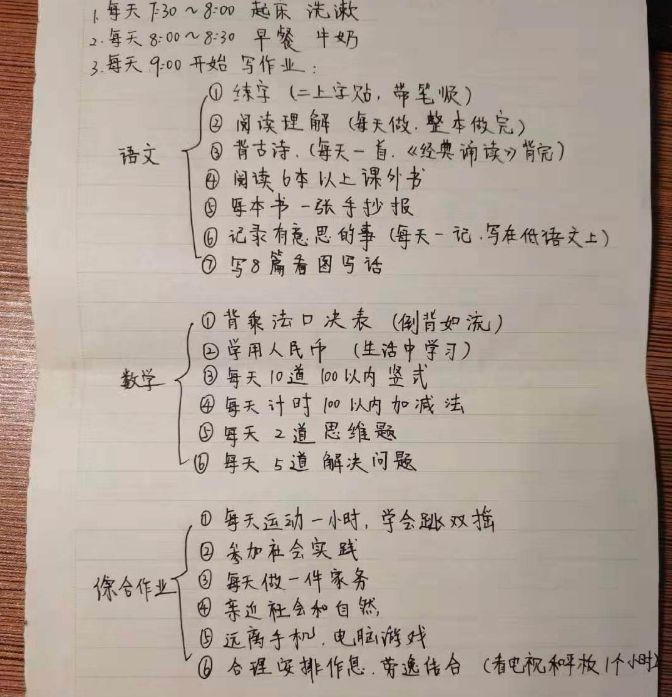 1. 每天 7:30 ~ 8:00 起床 洗漱
2. 每天 8:00 ~ 8:30 早餐 牛奶
3. 每天 9:00 开始 写作业:
① 练字 (二上字贴, 带笔顺)
② 阅读理解 (每天做, 整本做完)
语文 ③ 背古诗, (每天一首, 《经典诵读》背完)
④ 阅读 6本以上课外书
⑤ 每本书 一张手抄报
⑥ 记录有意思的事 (每天一记, 写在低语文上)
⑦ 写8篇看图写话
① 背乘法口决表 (倒背如流)
② 学用人民币 (生活中学习)
数学 ③ 每天10道100以内竖式
④ 每天计时100以内加减法
⑤ 每天 2道 思维题
⑥ 每天 5道 解决问题
① 每天运动一小时, 学会跳双摇
② 参加社会实践
综合作业 ③ 每天做一件家务
④ 亲近社会和自然,
⑤ 远离手机, 电脑游戏
⑥ 合理安排作息, 劳逸结合 (看电视和平板1个小时)